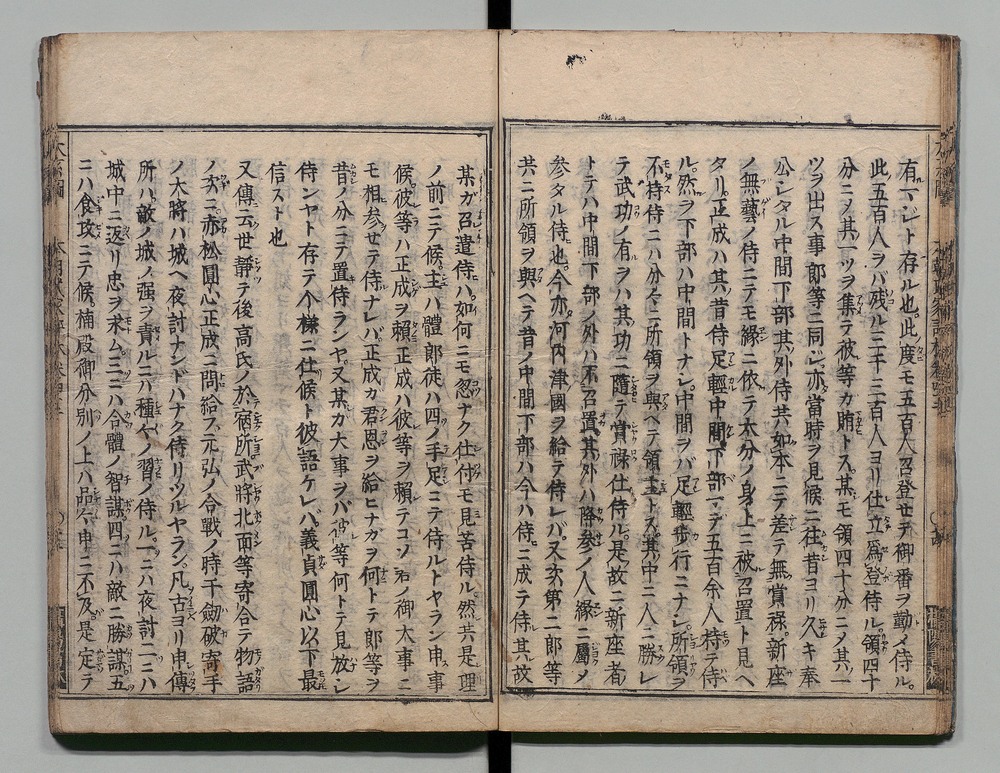 有ヘシト存ル也此度モ五百人召登セテ御番ヲ勤メ侍ル
此五百人ヲバ残ル二千三百人ヨリ仕立爲登侍ル領四十
分ニメ其一ツヲ集テ彼等カ賄トス某モ領四十分ニメ其一
ツヲ出ス事郎等ニ同ジ亦當時ヲ見候ニ往昔ヨリ久キ奉
公シタル中間下下部其外侍共如本ニテ差テ無賞禄新座
ノ無藝ノ侍ニテモ縁ニ依テ大分ノ身上ニ被召置ト見ヘ
タリ正成ハ其昔侍足輕中間下部マデ五百余人持テ侍
ル然ヲ下部ハ中間トナシ中間ヲバ足輕歩行ニナシ所領ヲ
不持侍ニハ分々ニ所領ヲ與ヘテ領主トス其中ニ人ニ勝レ
テ武功ノ有ヲハ其功ニ隨テ賞禄仕侍ル是故ニ新座者
トテハ中間下部ノ外ハ不召置其外ハ降参ノ人縁ニ屬メ
参タル侍也今亦河内津國ヲ給テ侍レバ又次第ニ郎等
共ニ所領ヲ與ヘテ昔ノ中間下部ハ今ハ侍ニ成テ侍其故
某ガ召遣侍ハ如何ニモ忍ナク仕付モ見苦侍ル然共是理
ノ前ニテ候主ハ體郎徒ハ四ノ手足ニテ侍ルトヤラン申事
候彼等ハ正成ヲ頼正成ハ彼等ヲ頼テコソ君ノ御大事ニ
モ相参セテ侍ナレバ正成カ君恩ヲ給ヒナガヲ何トテ郎等ヲ
昔ノ分ニテ置侍ランヤ又某カ大事ヲバ彼等何トテ見放レ
侍ンヤト存テ个様ニ仕候ト彼語ケレバ義貞圓心以下最
信スト也
又傳云世静テ後高氏ノ於宿所武將北面等寄合テ物語
ノ次ニ赤松圓心正成ニ問給フ元弘ノ合戰ノ時千劔破寄手
ノ大將ハ城ヘ夜討ナンドハナク侍リツルヤラン凡古ヨリ申傳
所ハ敵ノ城ノ强ヲ責ルニハ種々ノ習ノ侍ル一ニハ夜討二ニハ
城中ニ返リ忠ヲ求ム三ニハ合體ノ智謀四ニハ敵ニ勝謀五
ニハ食攻ニテ候楠殿御分別ノ上ハ品々申ニ不及是定テ